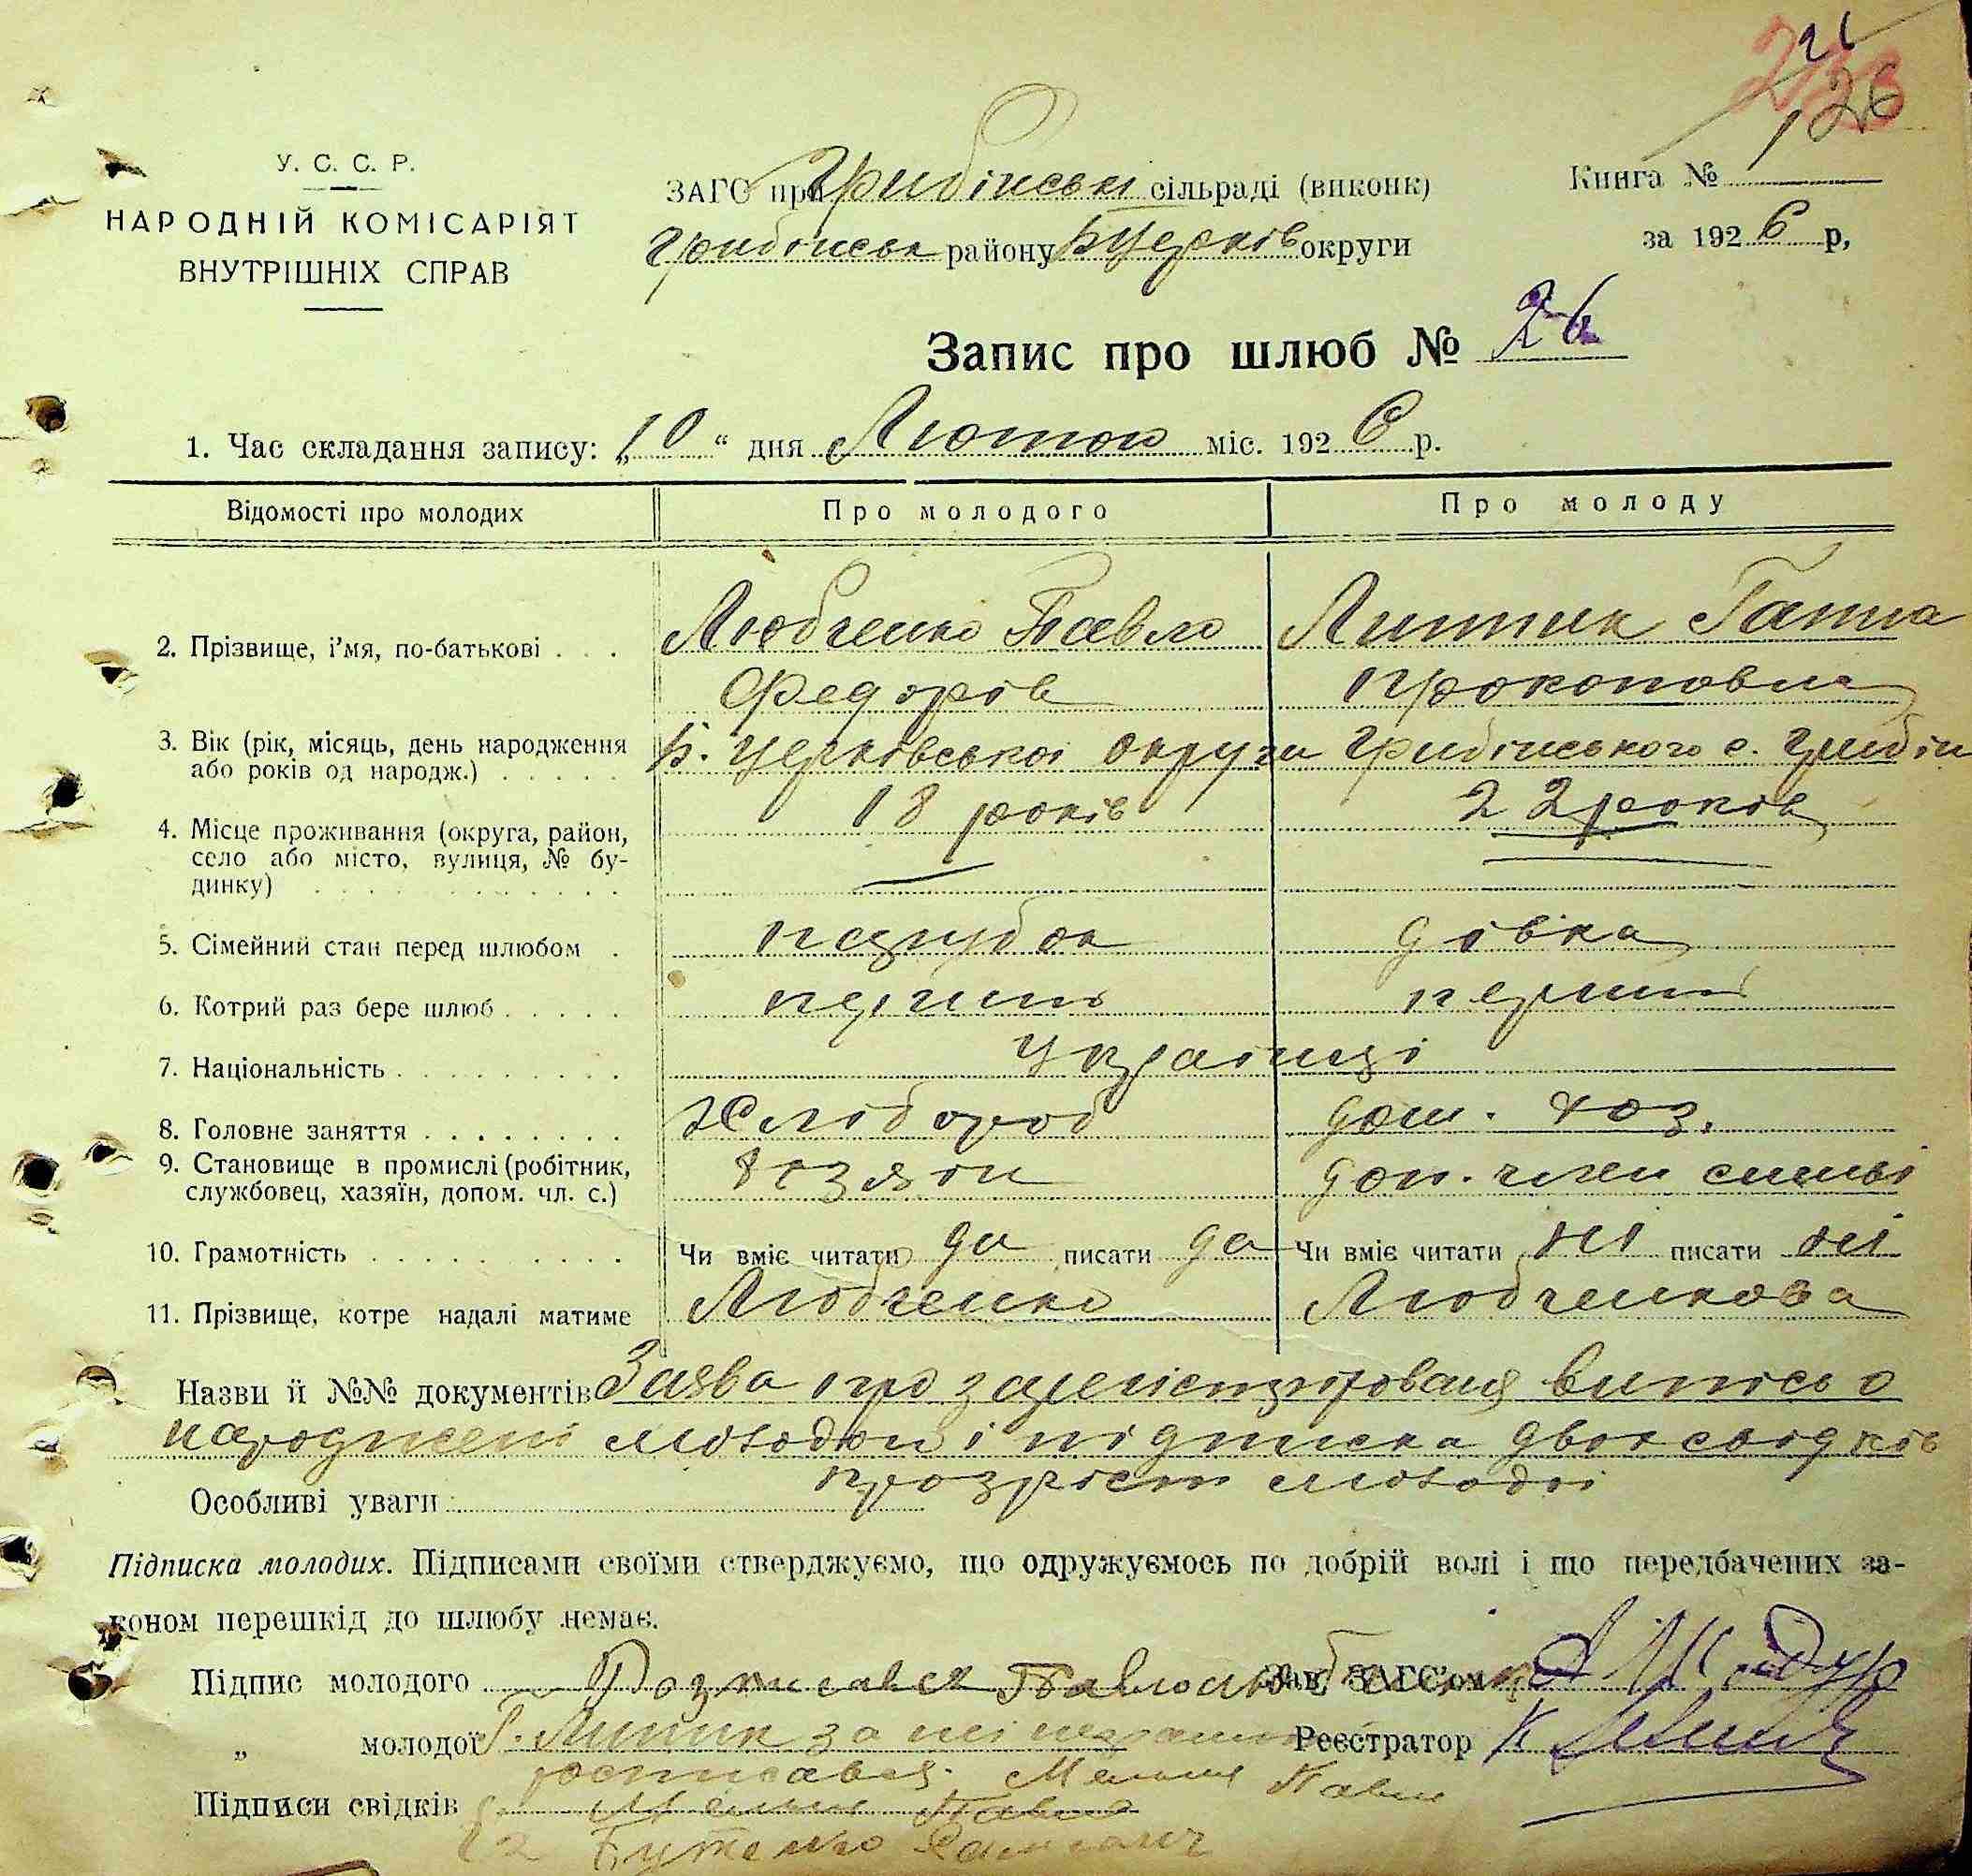 26
126
У. С. С. Р.
НАРОДНІЙ КОМІСАРІЯТ
ВНУТРІШНІХ СПРАВ
ЗАГС при Грибінські сільраді (виконк)
Грибінськ району Б Церків округи
Книга №
за 1926 р,
Запис про шлюб № 26
1. Час складання запису: „10“ дня Лютою міс. 1926 р.
Відомості про молодих Про молодого Про молоду
2. Прізвище, і'мя, по-батькові . . . Любченко Павло Липник Ганна
Федорів Прокоповна
3. Вік (рік, місяць, день народження
або років од народж.) . . . . . Б. Церківської округи Грибінського с. Грибін
18 років 22 років
4. Місце проживання (округа, район,
село або місто, вулиця, № бу-
динку) . . . . . . . . . . . .
5. Сімейний стан перед шлюбом . парубок дівка
6. Котрий раз бере шлюб . . . . . перший перший
7. Національність . . . . . . . . . . Українці
8. Головне заняття . . . . . . . . Хлібороб дом. хоз.
9. Становище в промислі (робітник,
службовец, хазяїн, допом. чл. с.) хозяїн доп. член симьі
10. Грамотність . . . . . . . . . . Чи вміє читати да писати да Чи вміє читати ні писати ні
11. Прізвище, котре надалі матиме Любченко Любченкова
Назви й №№ документів Заява про зарегістріровання випись о
народжені молодої і підписка двох свідків
про зріст молодої
Особливі уваги
Підписка молодих. Підписами своїми стверджуємо, що одружуємось по добрій волі і що передбачених за-
коном перешкід до шлюбу немає.
Підпис молодого Розписався Павло Зав. ЗАГС'ом
„ молодої Г. Липник за неї Реєстратор
росписався Павло
Підписи свідків Павло
2 Бутенко